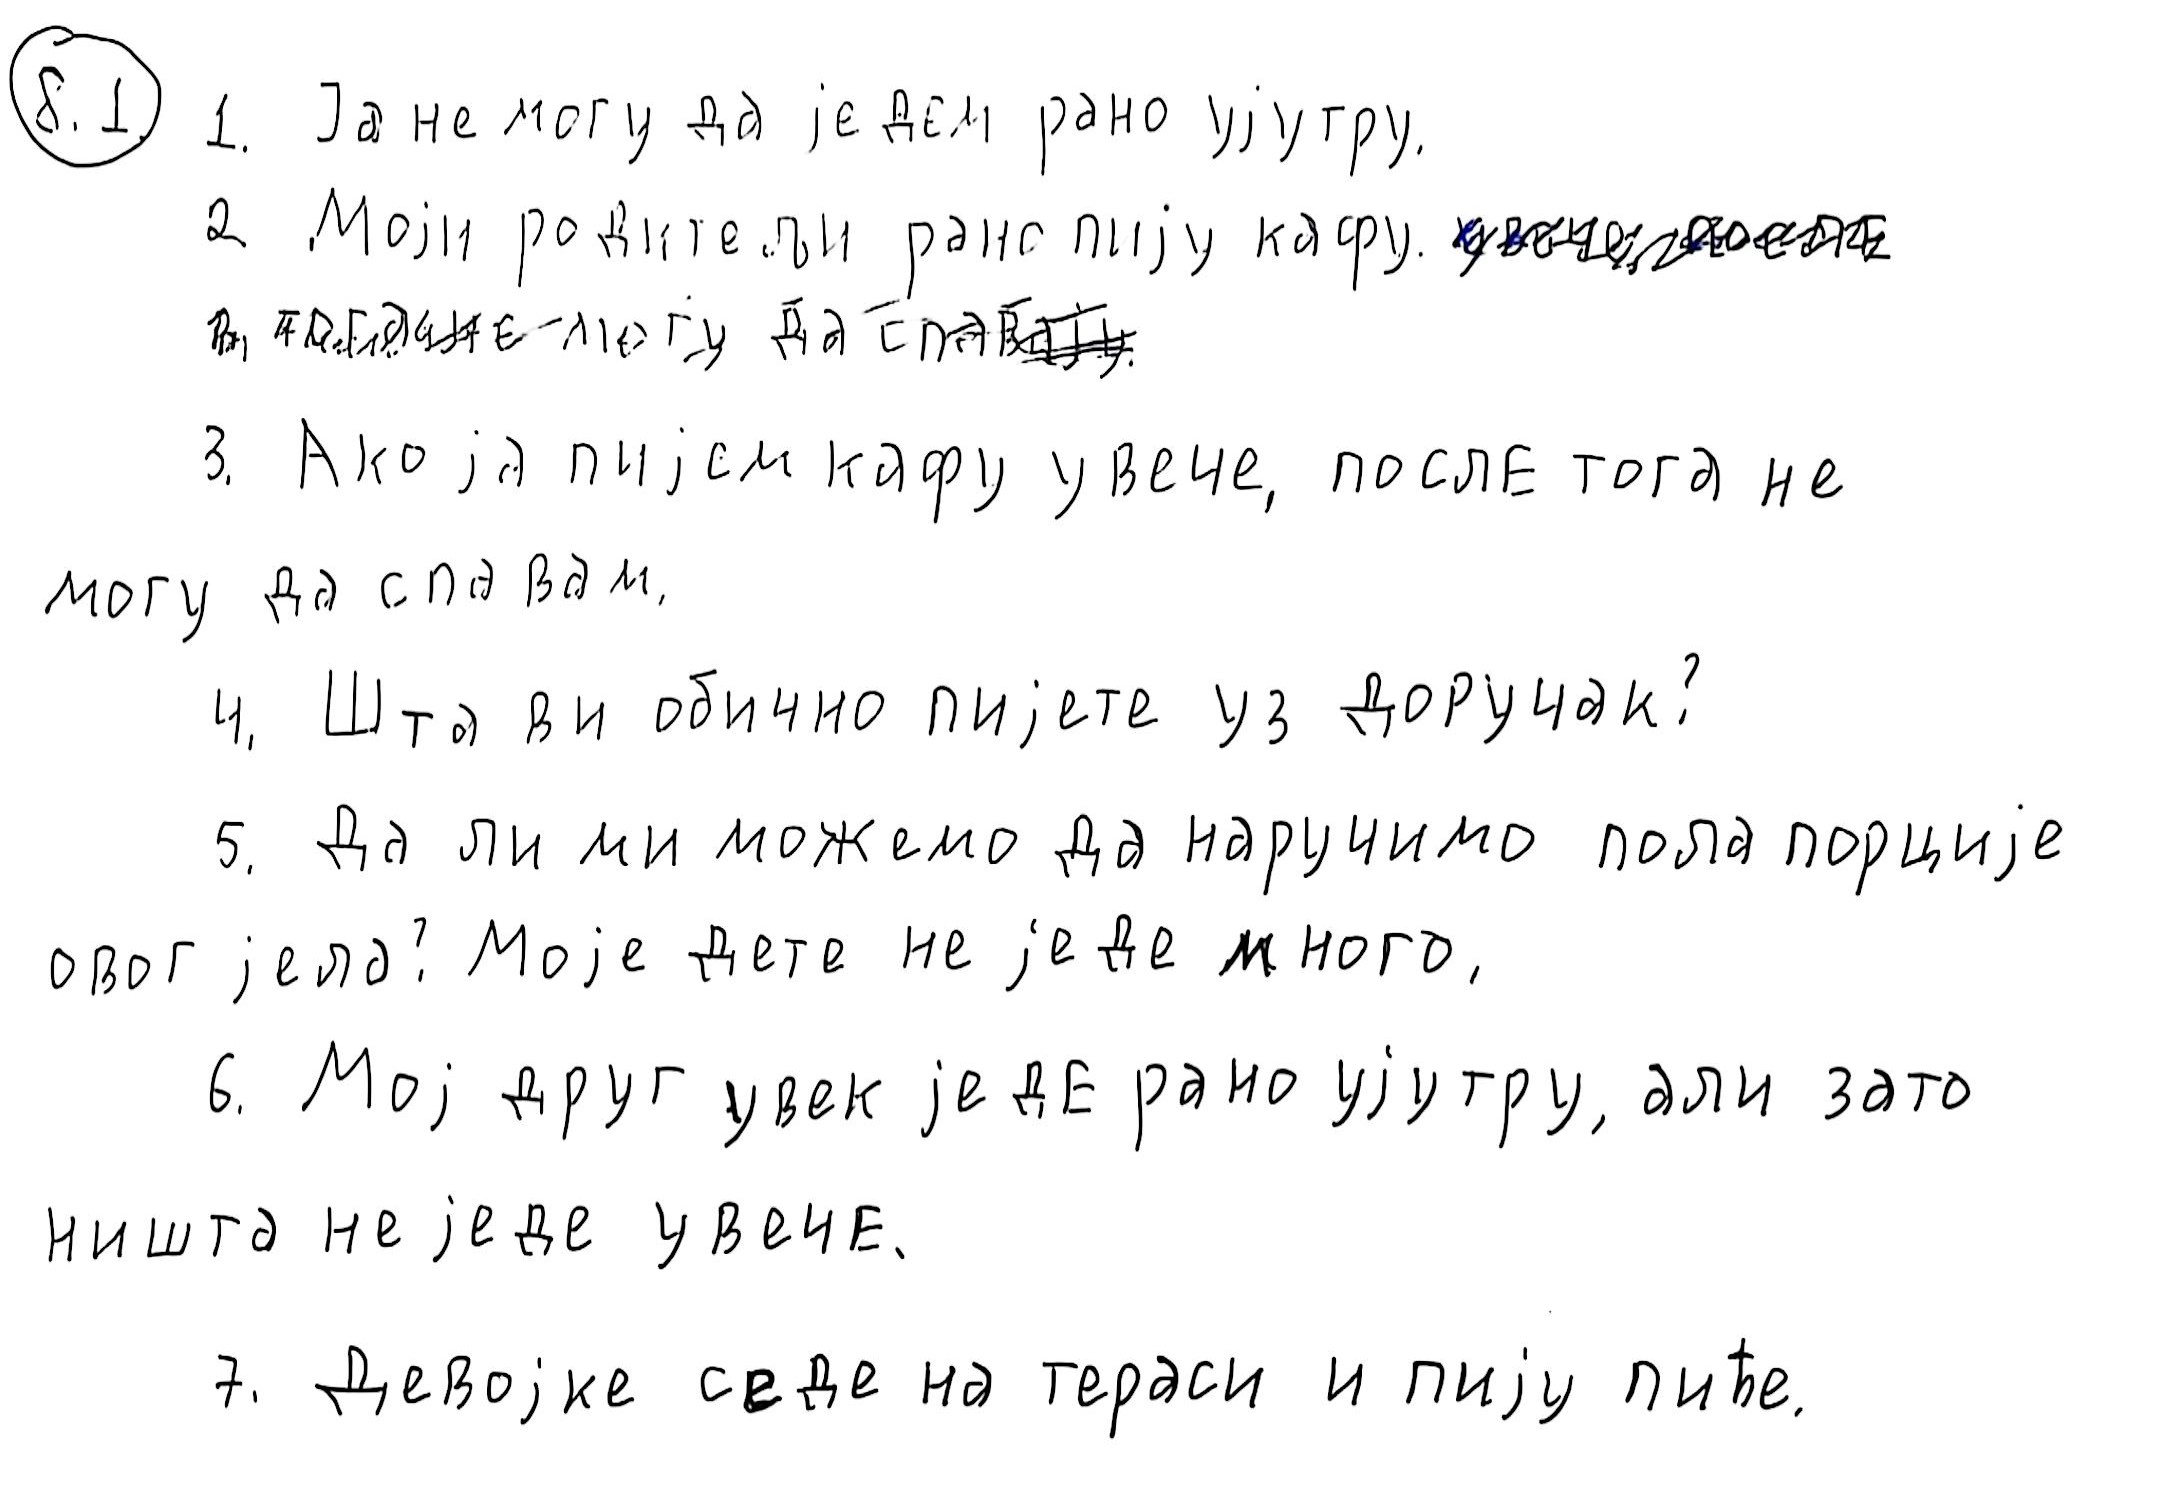 8.1 1. Ја не могу да једем рано ујутру.
2 Моји родитељи рано пију кафу.
могу да спавају.
3. Ако ја пијем кафу увече, после тога не
могу да спавам.
4. Шта ви обично пијете уз доручак?
5. Да ли ми можемо да наручимо пола порције
овог јела? Моје дете не једе много.
6. Мој друг увек једе рано ујутру, али зато
ништа не једе увече.
7. Девојке седе на тераси и пију пиће.